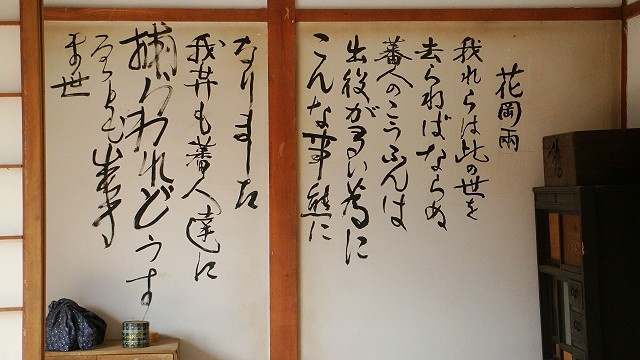 花岡兩
我れらは此の世を
去らねばならぬ
蕃人のこうふんは
出役が多い為に
こんな事態に
なりました
も蕃人達に
捕らわれどうす
ることも出来
ま世